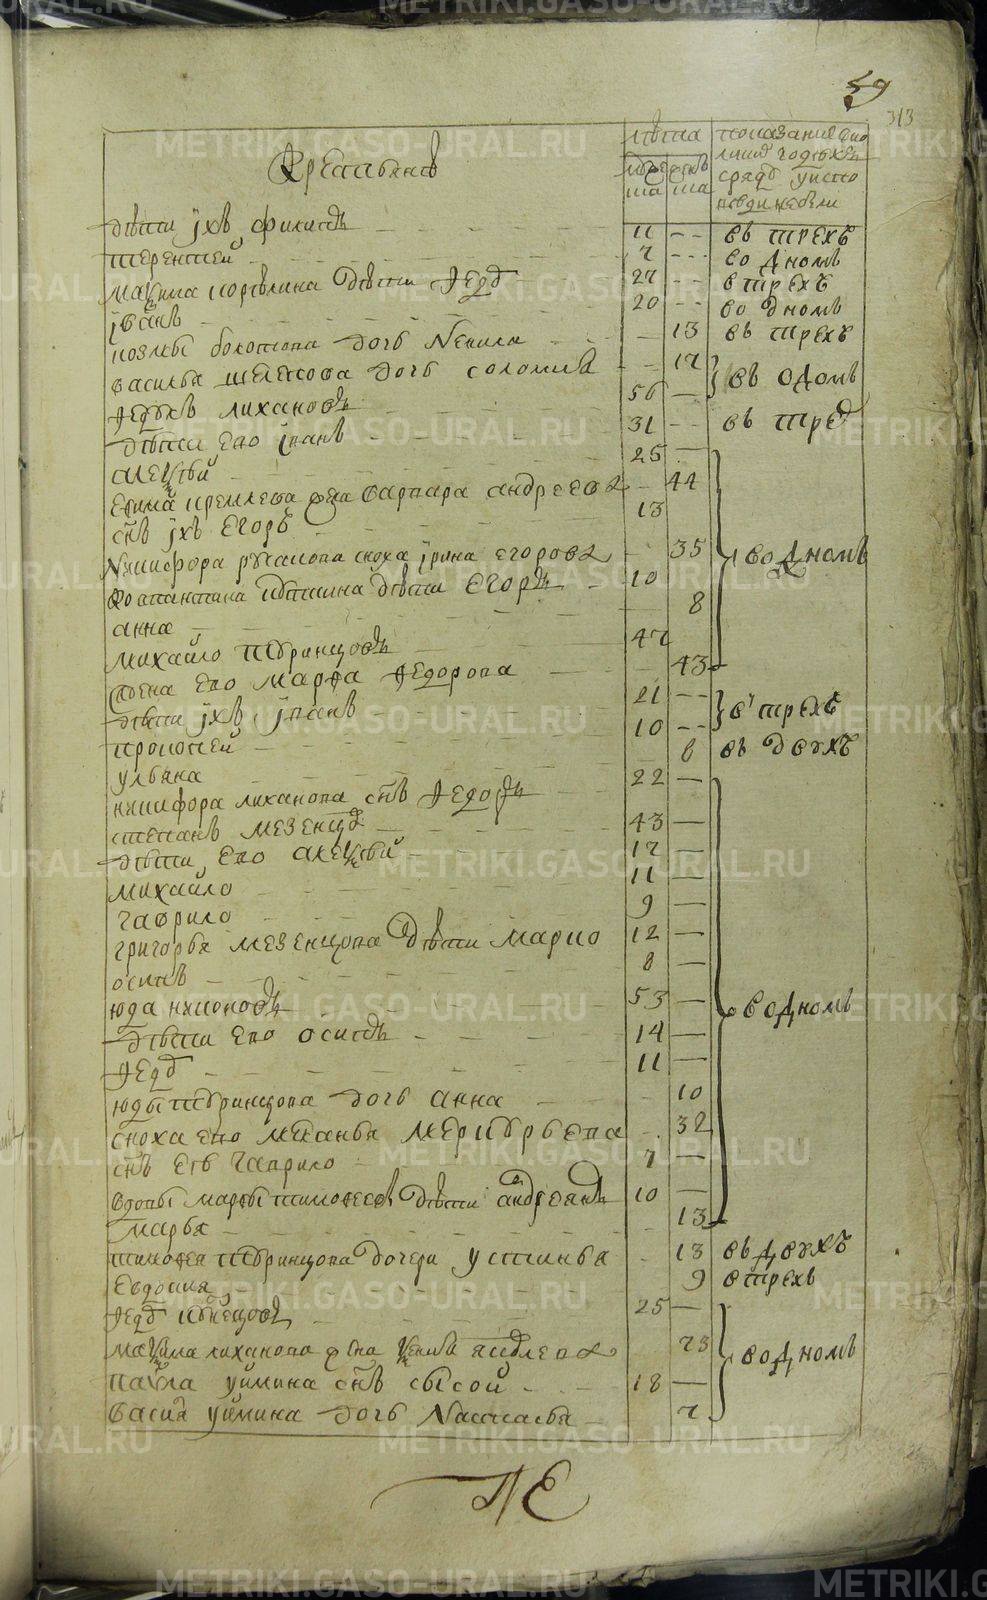 59
313
Крестьянъ
лѣта
мужеска
женска
показание сколко годовъ
сряду у исповеди не были
дѣти ихъ филипъ 11 въ трехъ
терентей 7 во дномъ
маѯима дѣти Ѳедоръ 27 в трехъ
іванъ 20 во дномъ
козмы болотова дочь Ненила 13 въ трехъ
василья шелехова дочь соломия 17
въ одомъ
Ѳедулъ лихановъ 56
дѣти ево іванъ 31 въ трех
алеѯѣй 25
Екима кремлева жена варвара андреева 44
снъ іхъ Егоръ 13
Никифора русакова сноха ірина егорова 35
во дномъ
костантина дѣти Егоръ 10
анна 8
михайло 47
жена ево марфа Ѳедорова 43
дѣти іхъ іванъ 21
в трехъ
прокопей 10
ульяна 8 въ двухъ
никифора лиханова снъ Ѳедоръ 22
степанъ мезенцов 43
дѣти ево алеѯѣй 17
михайло 11
гаврило 9
григорья мезенцова дѣти марко 12
осипъ 8
юда никоновъ 53
во дномъ
дѣти ево осипъ 14
Ѳедоръ 11
юды дочь анна 10
сноха ево меланья меркурьева 32
снъ еѣ гаврило 7
вдовы марфы тимофеевы дѣти андреянъ 10
марья 13
тимофея дочери устинья 13 въ двухъ
Евдокия 9 в трехъ
Ѳедоръ кузнецовъ 25
маѯима лиханова жена ѯенья яковлева 73
во дномъ
павла уймина снъ сысой 18
васил уймина дочь Настасья 7
ПЕ
METRIKI.GASO-URAL.RU